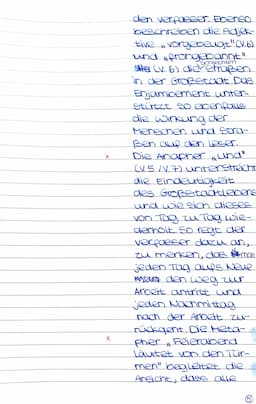 den Verfasser. Ebenso
beschreiben die Adjek-
tive „vorgebeugt" (V.6)
und „
(V. 6) die Straßen
in der Großstadt. Das
Enjambement unter-
stützt so ebenfalls
die Wirkung der
Menschen und Stra-
ßen auf den Leser.
Die Anapher „und"
(V.5/V.7) unterstreicht
die Eindeutigkeit
des Großstadtlebens
und wie sich dieses
von Tag zu Tag wie-
derholt. So regt der
Verfasser dazu an,
zu merken, das
jeden Tag aufs Neue
den Weg zur
Arbeit antritt und
jeden Nachmittag
nach der Arbeit zu-
rückgeht. Die Meta-
pher „Feierabend
läutet von den Tür-
men" begleitet die
Ansicht, dass alle